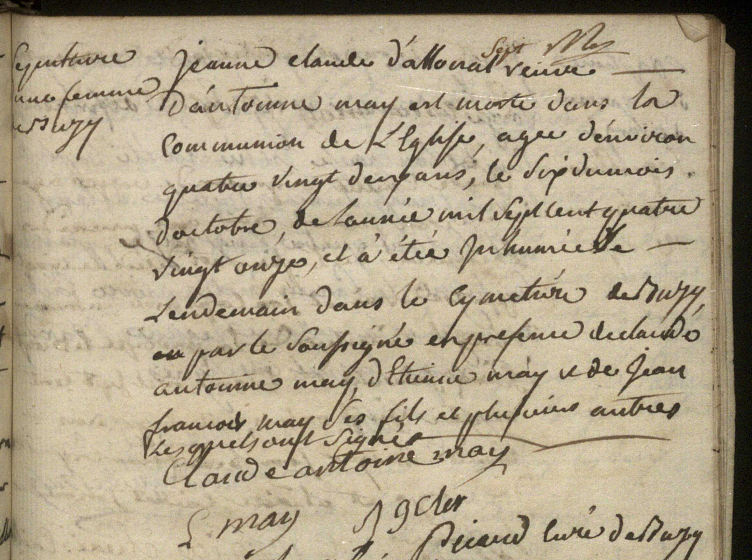 Sepulture
une femme
de Buzy
Sept
jeanne claude d'allonal veuve
D'antoinne may est morte dans la
Communion de L'Eglise, agée d'environ
quatre vingt deux ans, le Six du mois
d'octobre, de lannée mil Sept cent quatre
vingt onze, et a étée Inhumée le
Lendemain dans le Cymetiére de Buzy,
par le Soussigné en presence de claude
antoinne may, d'Etienne may et de jean
francois may Ses fils et plusieurs autres
Lesquels ont Signés
Claude antoine may
E may
Picard Curé de Buzy